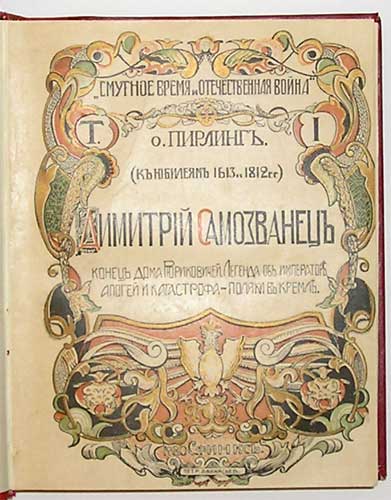 „СМУТНОЕ ВРЕМЯ И ОТЕЧЕСТВЕННАЯ ВОЙНА"
Т. I
О. ПИРЛИНГЪ.
(КЪ ЮБИЛЕЯМЪ 1613 и 1812 г.г)
ДИМИТРІЙ САМОЗВАНЕЦЪ
КОНЕЦЪ ДОМА РЮРИКОВИЧЕЙ, ЛЕГЕНДА ОБЪ ИМПЕРАТОРѢ,
АПОГЕЙ И КАТАСТРОФА – ПОЛЯКИ ВЪ КРЕМЛѢ.
СФИНКСЪ